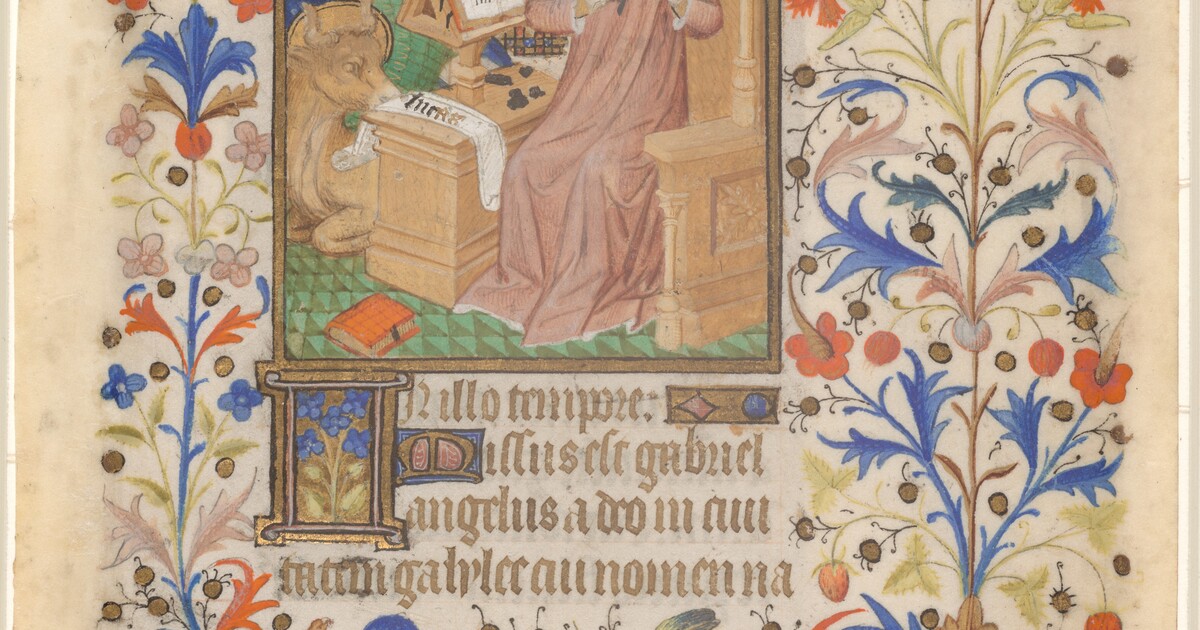 lucas
In illo tempore:
Missus est gabriel
angelus a deo in ciui
tatem galylee cui nomen na